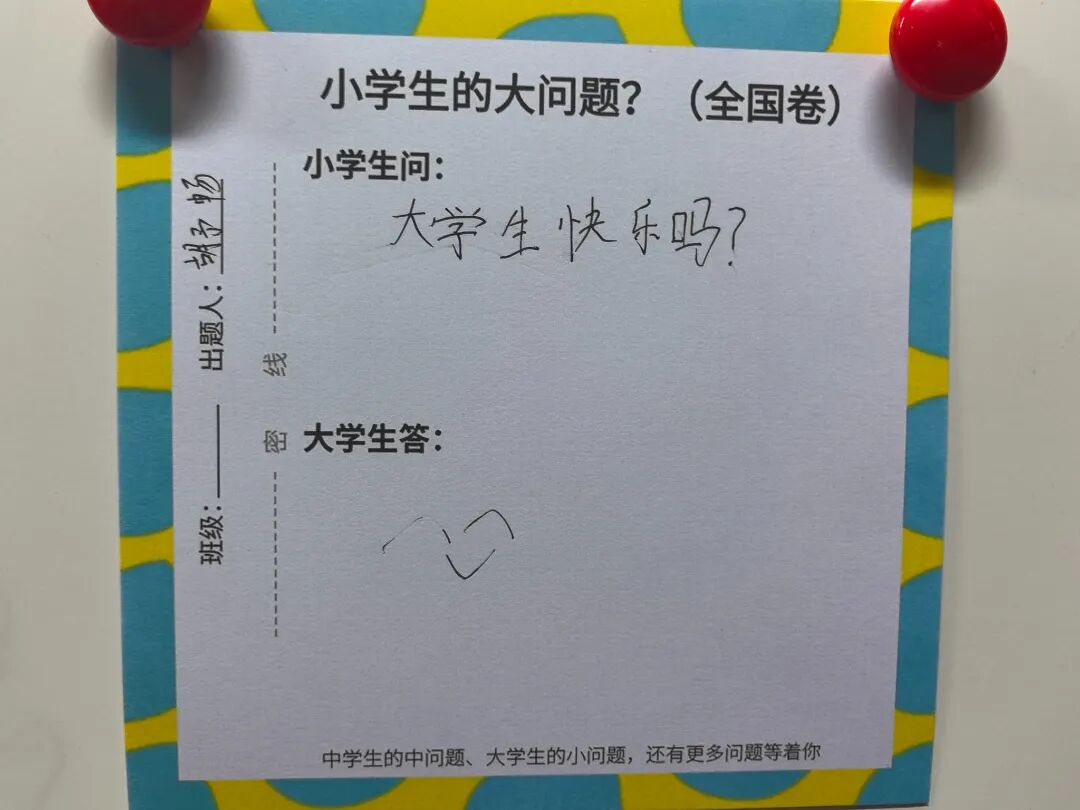 小学生的大问题？（全国卷）
小学生问：
大学生快乐吗？
大学生答：
班级：
出题人：胡予畅
密 线
中学生的中问题、大学生的小问题，还有更多问题等着你